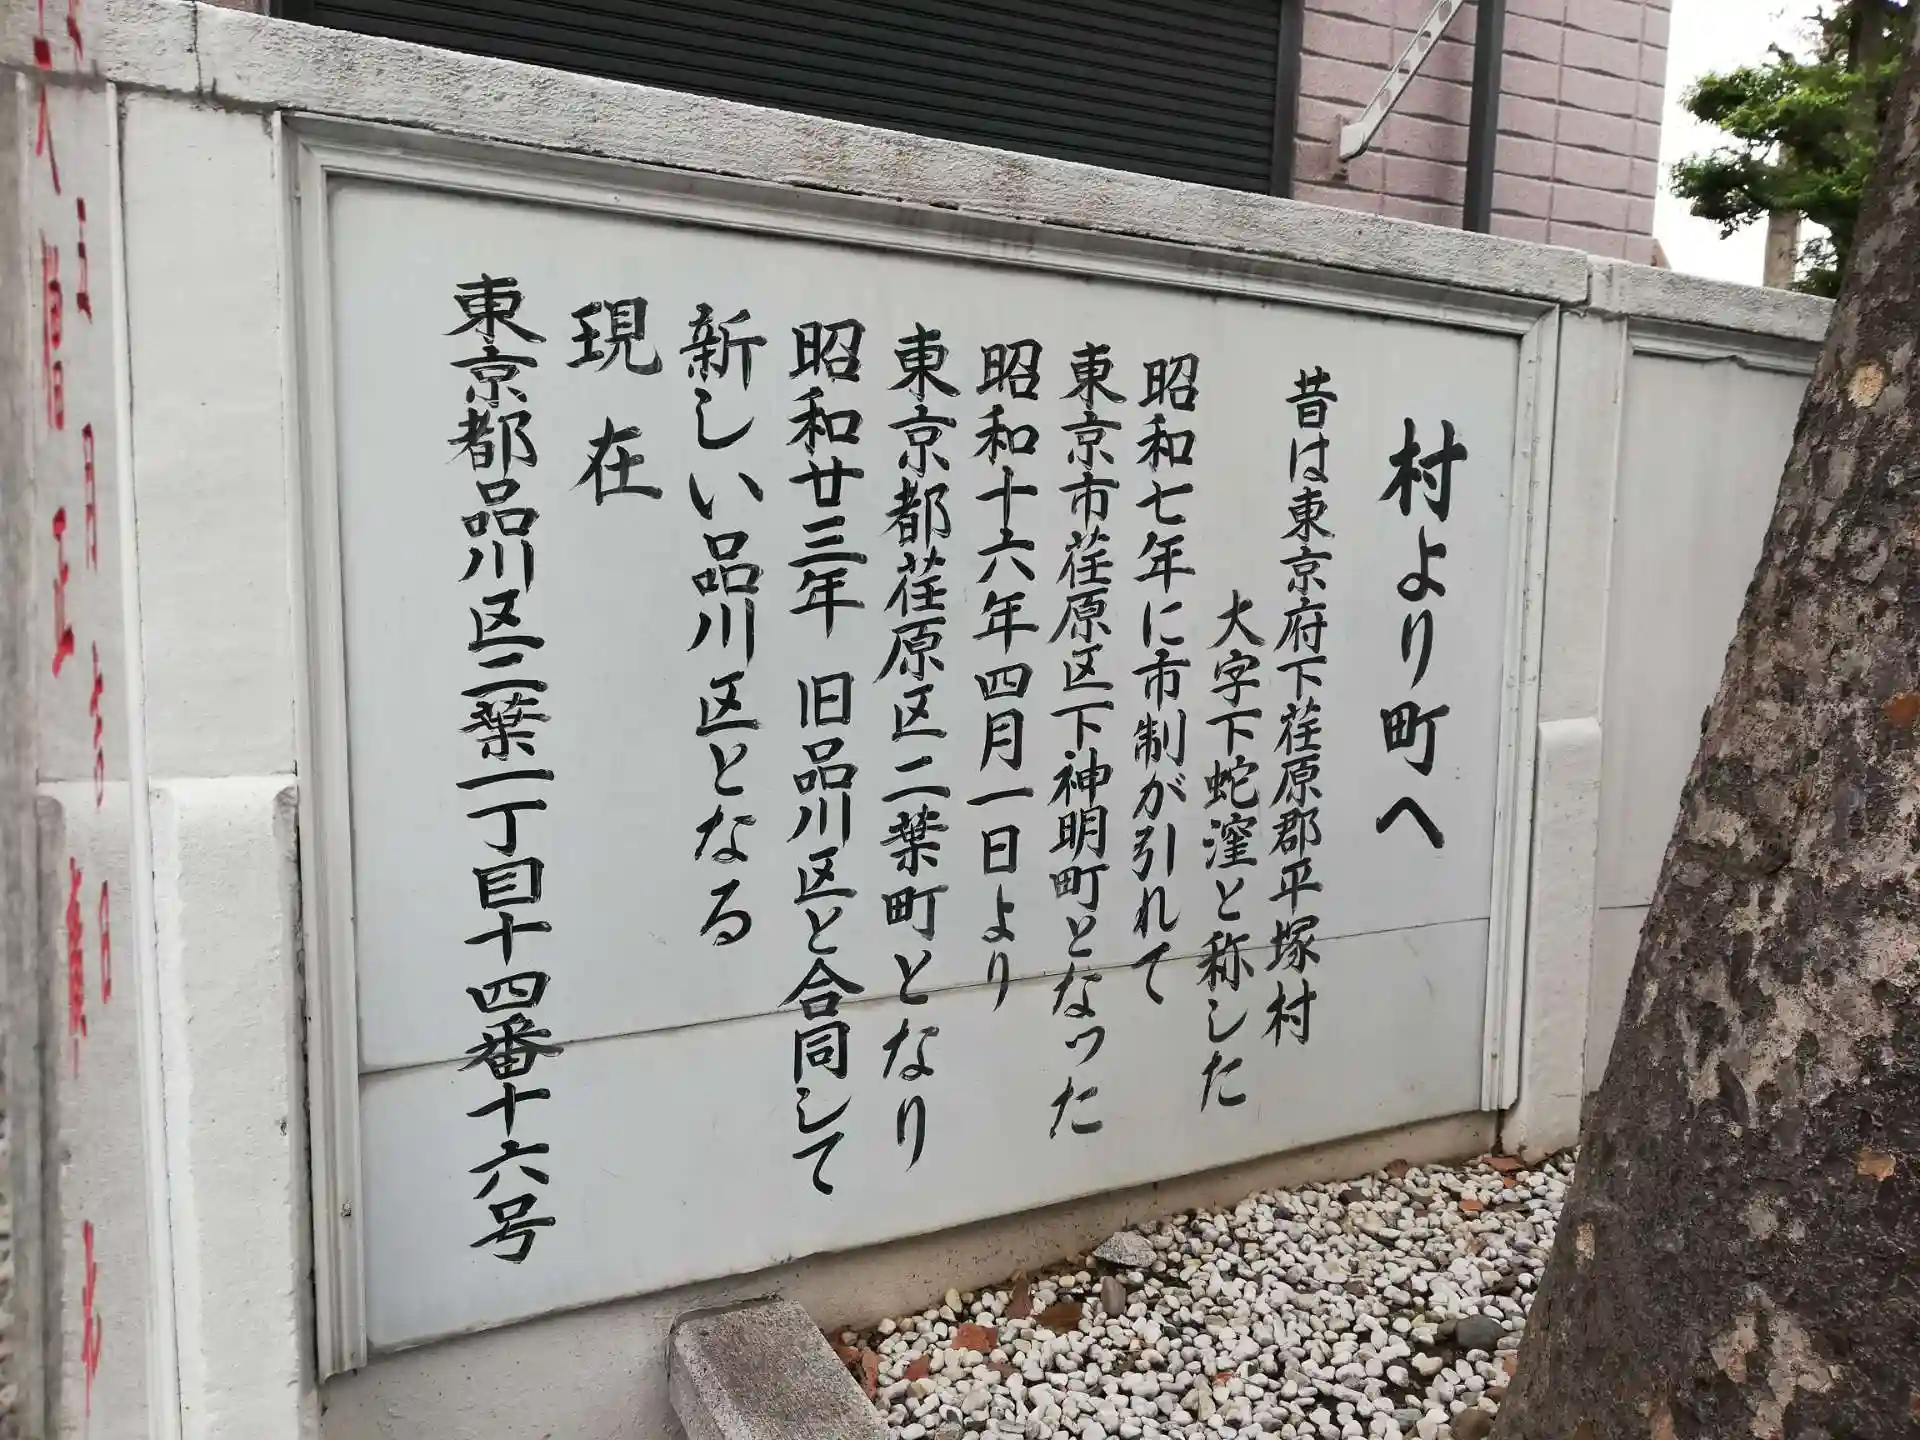 村より町へ
昔は東京府下荏原郡平塚村
大字下蛇窪と称した
昭和七年に市制が引れて
東京市荏原区下神明町となった
昭和十六年四月一日より
東京都荏原区二葉町となり
昭和廿三年 旧品川区と合同して
新しい品川区となる
現在
東京都品川区二葉一丁目十四番十六号
五月吉日